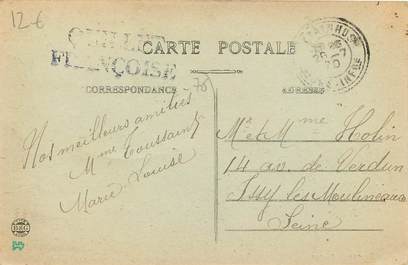 12-6
FRANÇOISE
CARTE POSTALE
CORRESPONDANCE
ADRESSE
Nos meilleurs amitiés
Mme Toussaint
Marie Louise
Mr et Mme Holin
14 av. de Verdun
Issy les Moulineaux
Seine